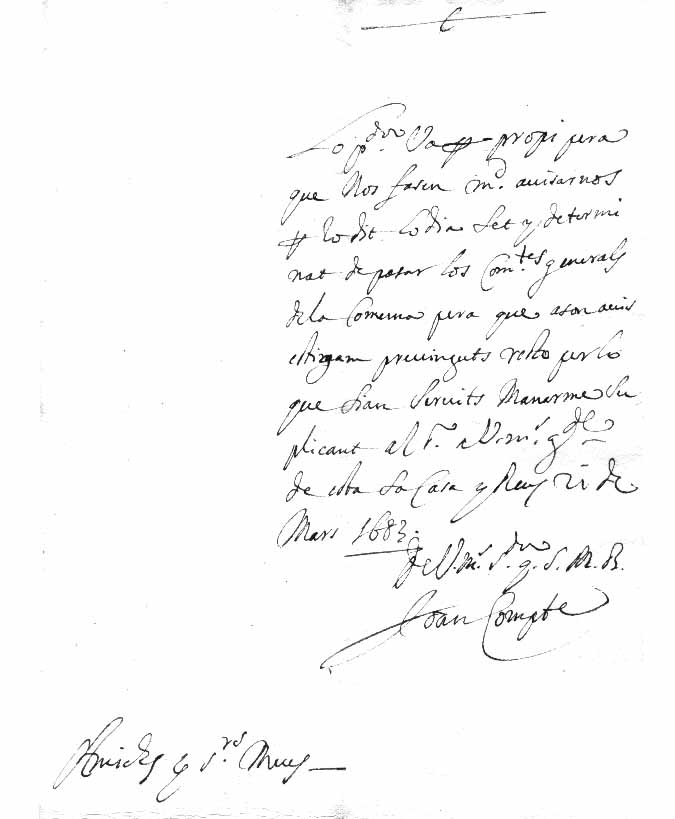 Lo p.dor Va propi pera
que Nos fasen m.d avisarnos
lo dit lo dia set y determi
nat de pasar los Com.tes generals
de la Comuna pera que ason avis
estigam previnguts resto per lo
que sian servits Manarme Su
plicant al S.r a V.ms. g.de
de esta Sa Casa y Reus 22 de
Mars 1683.
De V.Ms. S.dor q. S. M. B.
Joan Compte
Amichs y S.rs Meus